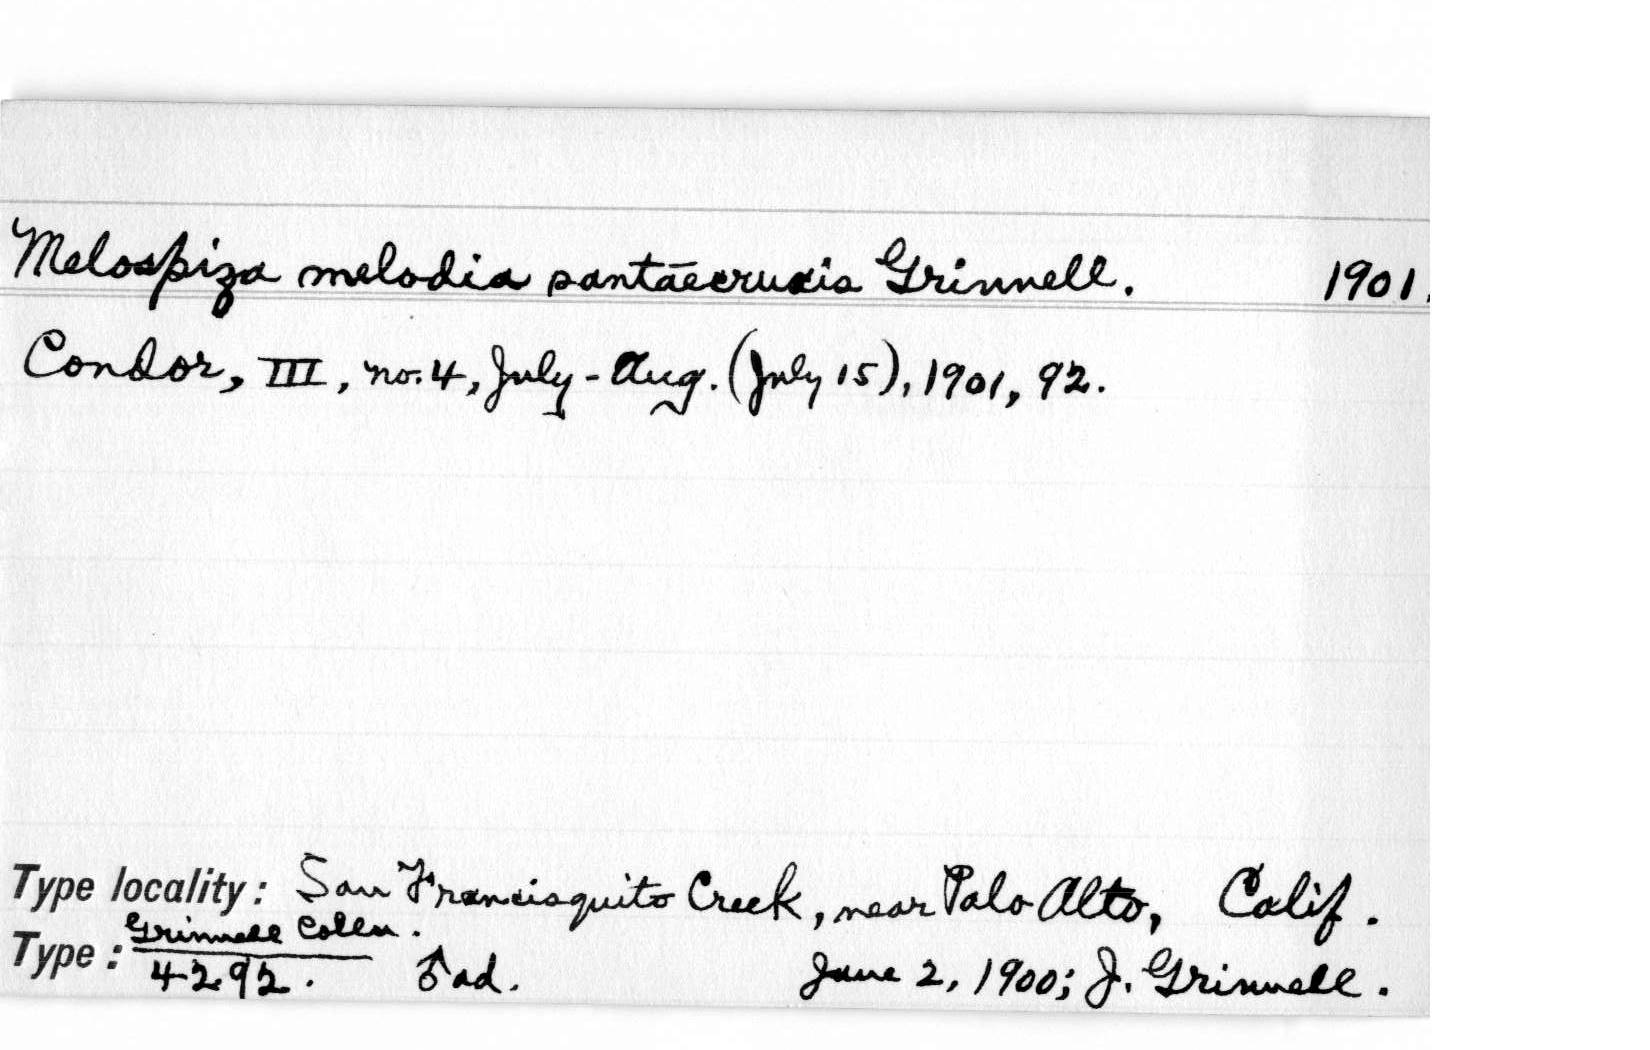 Melospiza melodia santaecrucis Grinnell. 1901.
Condor, III, no. 4, July-Aug. (July 15), 1901, 92.
Type locality: San Francisquito Creek, near Palo Alto, Calif.
Grinnell Colln.
Type: 4292. ♂ ad. June 2, 1900; J. Grinnell.